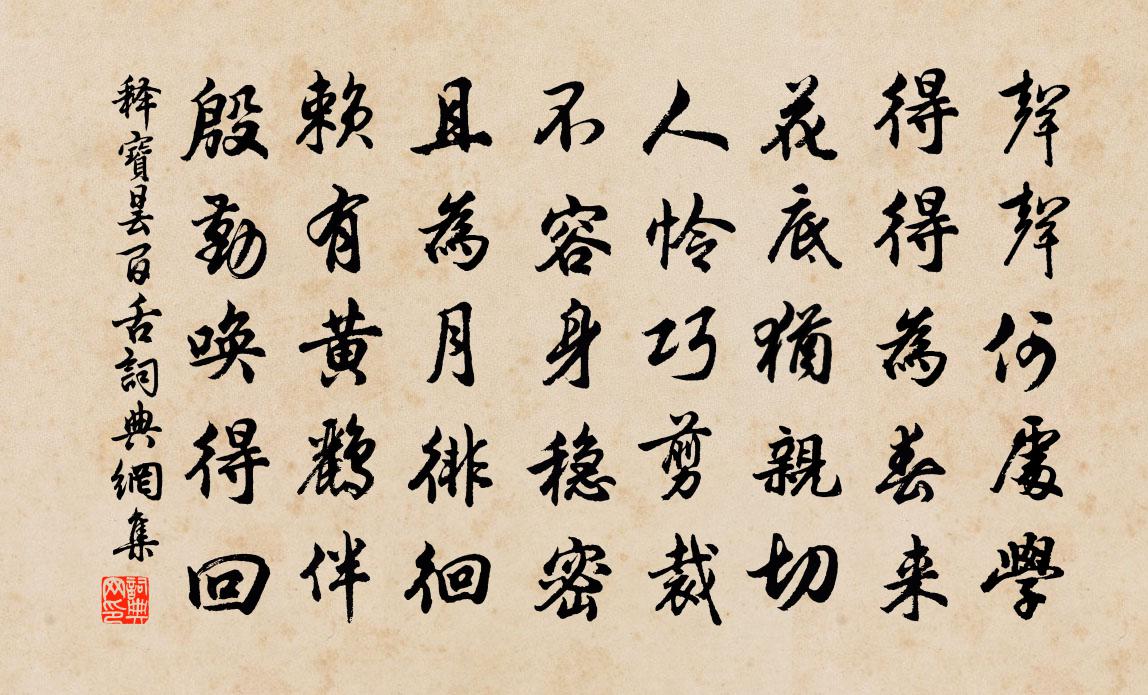 聲聲何處學
得得為春来
花底猶親切
人怜巧剪裁
不容身穏密
且為月徘徊
賴有黄鸝伴
殷勤唤得回
释寶曇百舌詞典網集
詞典网印